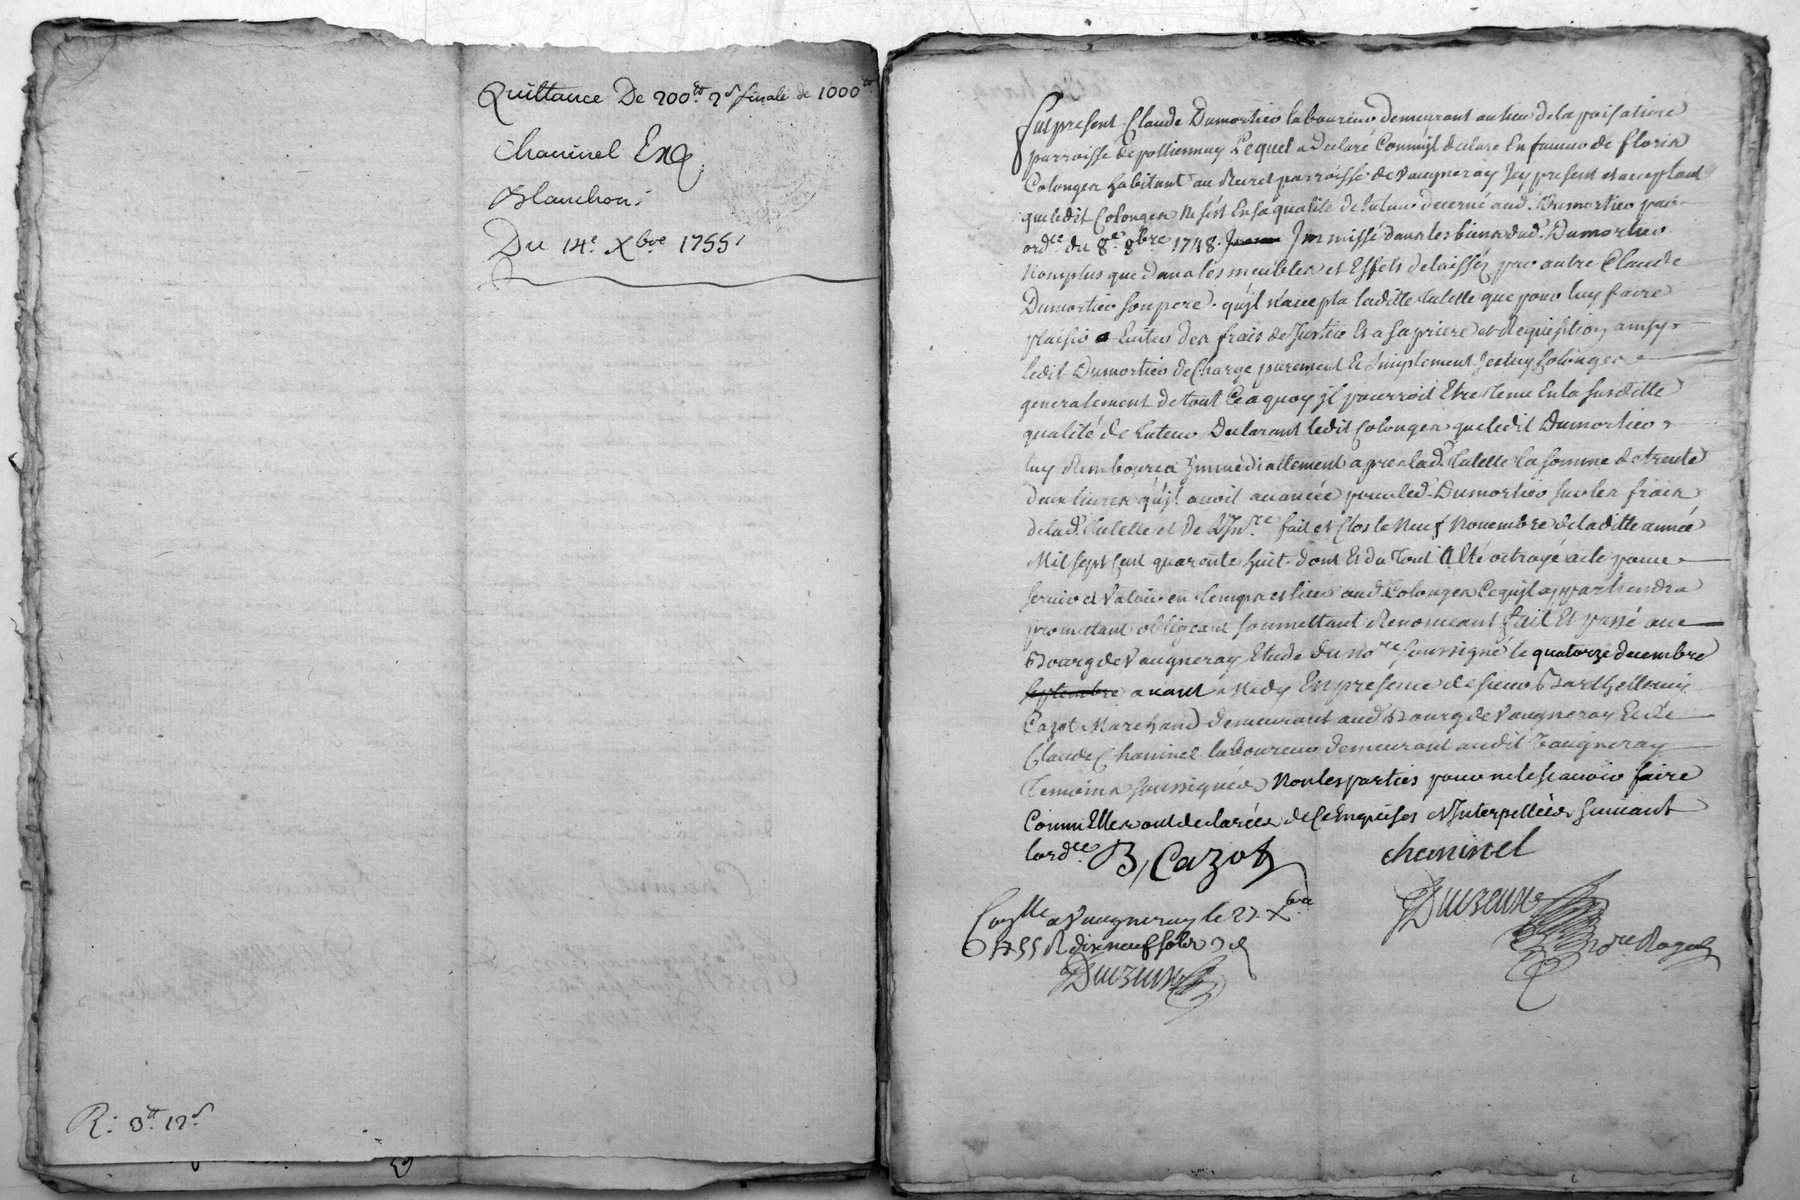 Quittance De 200.tt 2.s finale de 1000tt
Chaninel Enq
Blanchon.
Du 14.e Xbre 1755.
R: 3.tt 12.s
Fut present Claude Dumortier laboureur demeurant au lieu de la
parroisse de pollionnay Lequel a declaré Comm'jl declare En faveur de floris
Colonges habitant au parroisse de Vaugneray Jcy present et acceptant
que ledit Colonges ne s'est En sa qualité de tuteur decerné aud. Dumortier par
ordce du 8.e 8bre 1748. Immissé dans les biens dud. Dumortier
Nomplus que dans les meubles et Effets delaissés par autre Claude
Dumortier son pere. qu'jl n'accepta laditte tutelle que pour luy faire
plaisir Eviter des frais de Justice Et a sa priere et Requisition, ainsy
ledit Dumortier deCharge purement Et simplement Jceluy Colonges
generalement de tout Ce a quoy jl pourroit Etre tenu En la susditte
qualité de tuteur Declarant ledit Colonges que ledit Dumortier
luy Remboursa Immediattement apres lad. tutelle la somme de trente
deux livres qu'jl avoit avancée pour led. Dumortier sur les frais
de lad. tutelle et de L'Jnre fait et Clos le Neuf Novembre de laditte année
Mil sept Cent quarente huit. dont Et du tout a Eté octroyé acte pour
servir et Valoir en temps et lieu aud. Colonges Ce qu'jl appartiendra
promettant obligeant soumettant Renonceant fait Et passé au
Bourg de Vaugneray Etude du nore soussigné le quatorze decembre
septembre avant Midy En presence de sieur Barthellemy
Cazot Marchand demeurant aud. Bourg de Vaugneray Et de
Claude Chaninel laboureur demeurant audit Vaugneray
Temoins soussignés Non les parties pour ne le sçavoir faire
Comm'Elles ont declarées de Ce Enquises et Interpellées suivant
lordce B, Cazot chaninel
Duizeux nore Royal
Conlle a Vaugneray le 27 Xbre
1755 R dixneuf sols
Duizeux